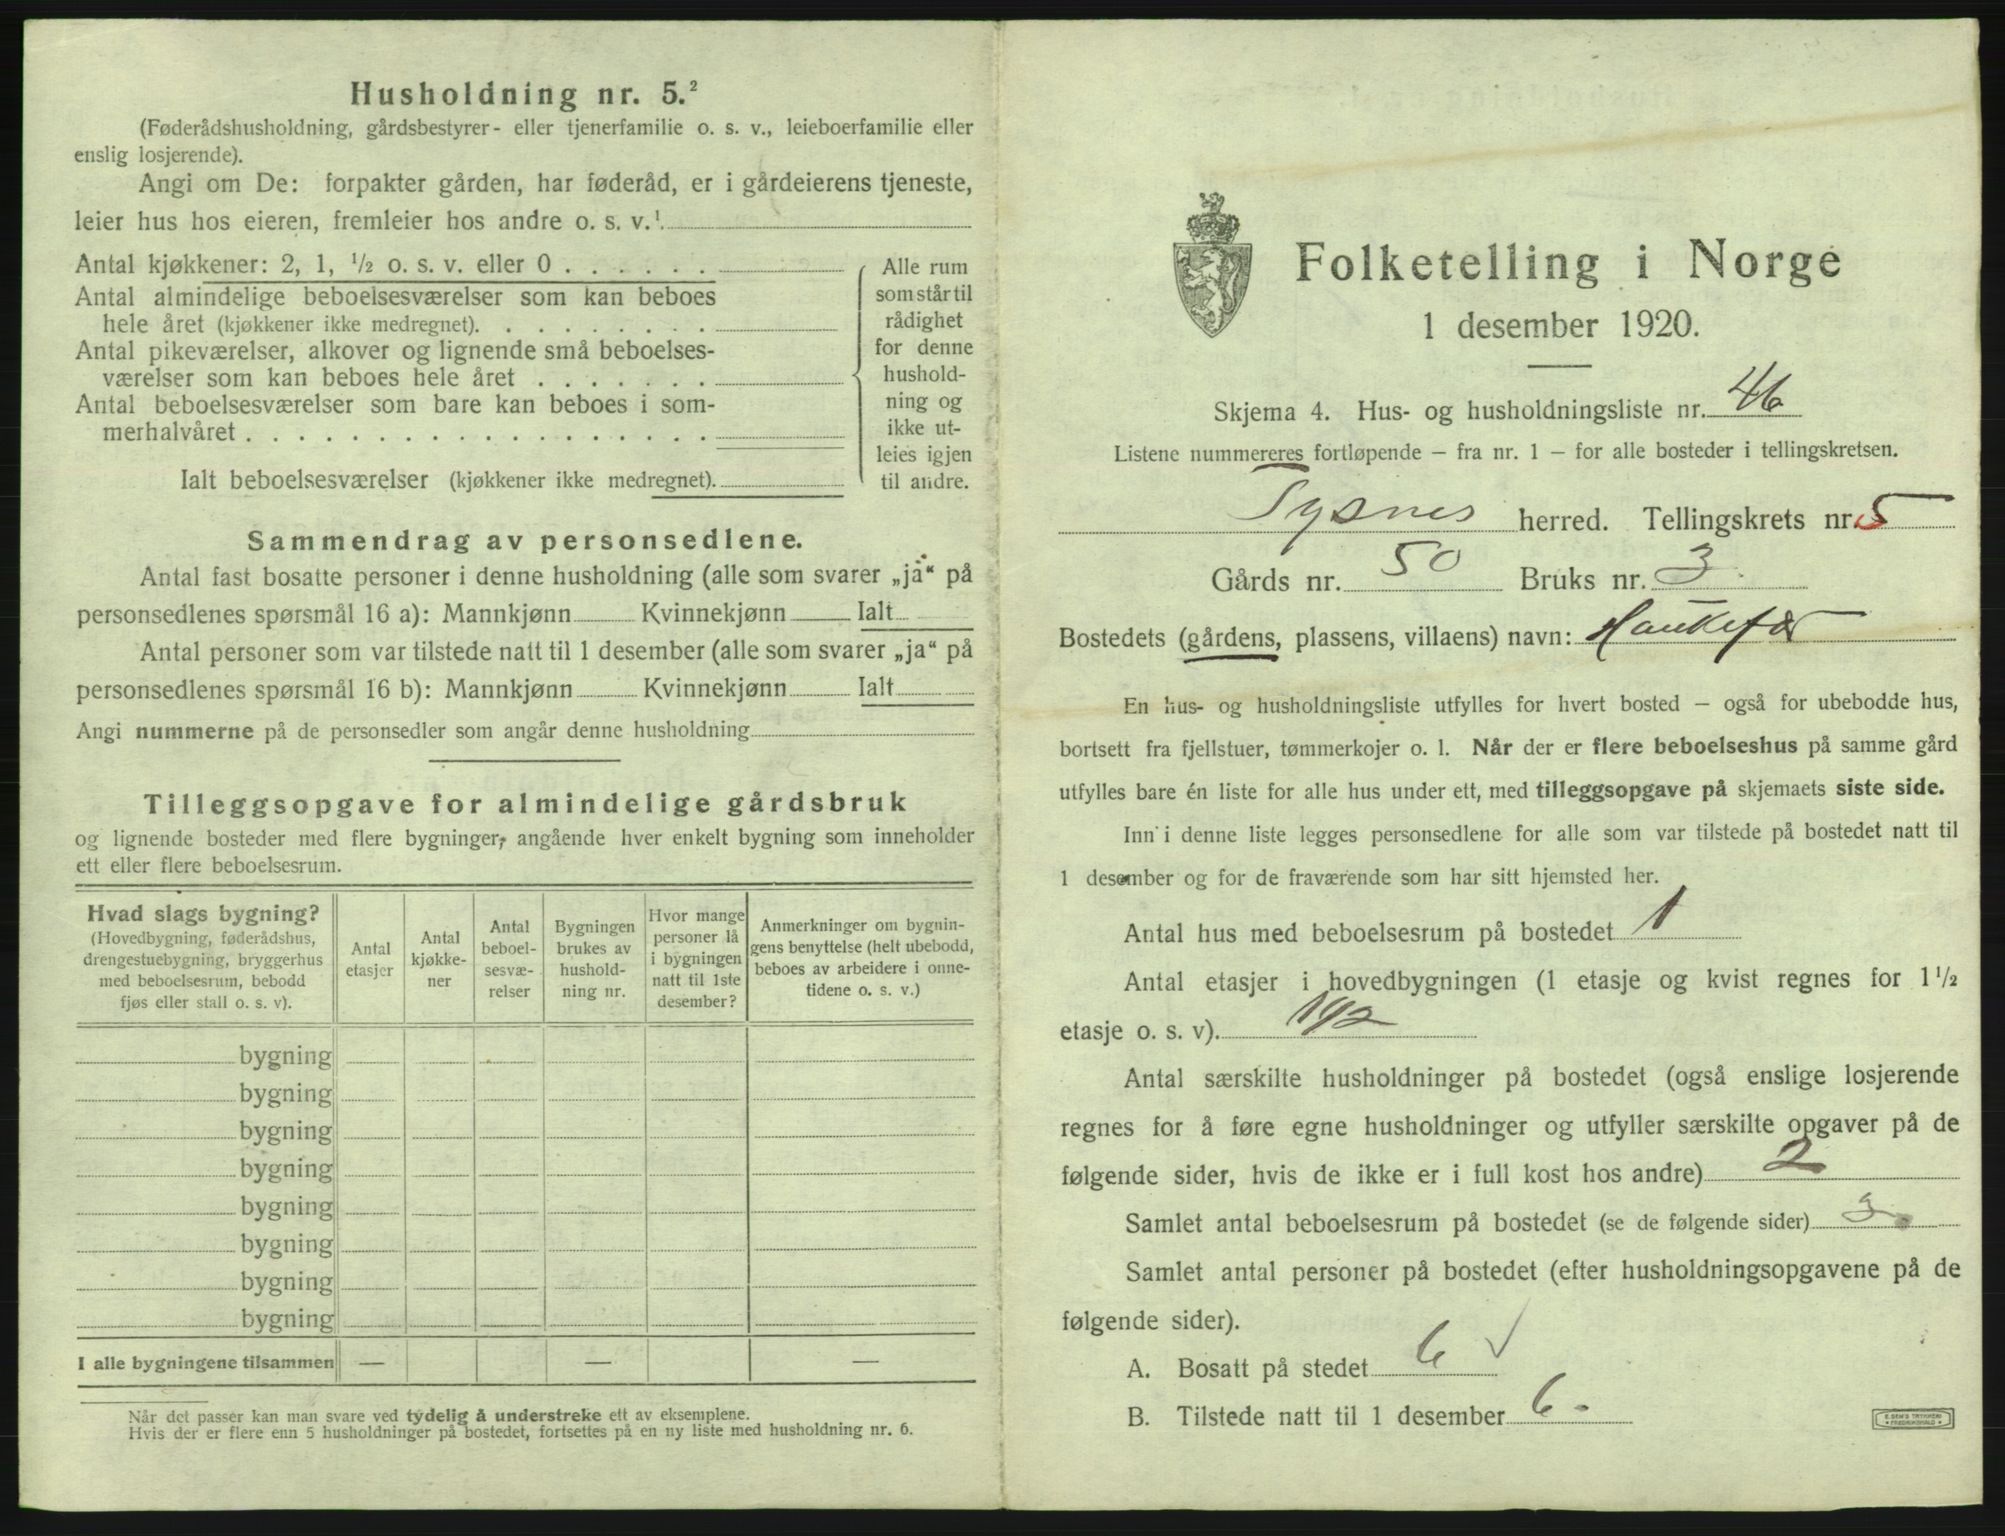 Husholdning nr. 5.²
(Føderådshusholdning, gårdsbestyrer- eller tjenerfamilie o. s. v., leieboerfamilie eller
enslig losjerende).
Angi om De: forpakter gården, har føderåd, er i gårdeierens tjeneste,
leier hus hos eieren, fremleier hos andre o. s. v.¹
Antal kjøkkener: 2, 1, ½ o. s. v. eller 0 . . . . . .
Antal almindelige beboelsesværelser som kan beboes
hele året (kjøkkener ikke medregnet). . . . . . . . .
Antal pikeværelser, alkover og lignende små beboelses-
værelser som kan beboes hele året . . . . . . .
Antal beboelsesværelser som bare kan beboes i som-
merhalvåret . . . . . . . . . . . . . . . . . .
Ialt beboelsesværelser (kjøkkener ikke medregnet).
Alle rum
som står til
rådighet
for denne
hushold-
ning og
ikke ut-
leies igjen
til andre.
Sammendrag av personsedlene.
Antal fast bosatte personer i denne husholdning (alle som svarer „ja“ på
personsedlenes spørsmål 16 a): Mannkjønn Kvinnekjønn Ialt
Antal personer som var tilstede natt til 1 desember (alle som svarer „ja“ på
personsedlenes spørsmål 16 b): Mannkjønn Kvinnekjønn Ialt
Angi nummerne på de personsedler som angår denne husholdning
Tilleggsopgave for almindelige gårdsbruk
og lignende bosteder med flere bygninger, angående hver enkelt bygning som inneholder
ett eller flere beboelsesrum.
Hvad slags bygning?
(Hovedbygning, føderådshus,
drengestuebygning, bryggerhus
med beboelsesrum, bebodd
fjøs eller stall o. s. v).
Antal
etasjer
Antal
kjøkke-
ner
Antal
beboel-
sesvæ-
relser
Bygningen
brukes av
hushold-
ning nr.
Hvor mange
personer lå
i bygningen
natt til 1ste
desember?
Anmerkninger om bygnin-
gens benyttelse (helt ubebodd,
beboes av arbeidere i onne-
tidene o. s. v.)
bygning
bygning
bygning
bygning
bygning
bygning
bygning
bygning
I alle bygningene tilsammen — — —
Når det passer kan man svare ved tydelig å understreke ett av eksemplene.
Hvis der er flere enn 5 husholdninger på bostedet, fortsettes på en ny liste med husholdning nr. 6.
Folketelling i Norge
1 desember 1920.
Skjema 4. Hus- og husholdningsliste nr. 46
Listene nummereres fortløpende – fra nr. 1 – for alle bosteder i tellingskretsen.
Tysnes herred. Tellingskrets nr. 5
Gårds nr. 50 Bruks nr. 3
Bostedets (gårdens, plassens, villaens) navn: Haukefær
En hus- og husholdningsliste utfylles for hvert bosted – også for ubebodde hus,
bortsett fra fjellstuer, tømmerkojer o. l. Når der er flere beboelseshus på samme gård
utfylles bare én liste for alle hus under ett, med tilleggsopgave på skjemaets siste side.
Inn i denne liste legges personsedlene for alle som var tilstede på bostedet natt til
1 desember og for de fraværende som har sitt hjemsted her.
Antal hus med beboelsesrum på bostedet 1
Antal etasjer i hovedbygningen (1 etasje og kvist regnes for 1½
etasje o. s. v). 1½
Antal særskilte husholdninger på bostedet (også enslige losjerende
regnes for å føre egne husholdninger og utfyller særskilte opgaver på de
følgende sider, hvis de ikke er i full kost hos andre) 2
Samlet antal beboelsesrum på bostedet (se de følgende sider) 3
Samlet antal personer på bostedet (efter husholdningsopgavene på de
følgende sider).
A. Bosatt på stedet 6 ✓
B. Tilstede natt til 1 desember 6.
E. SEM'S TRYKKERI
FREDRIKSHALD